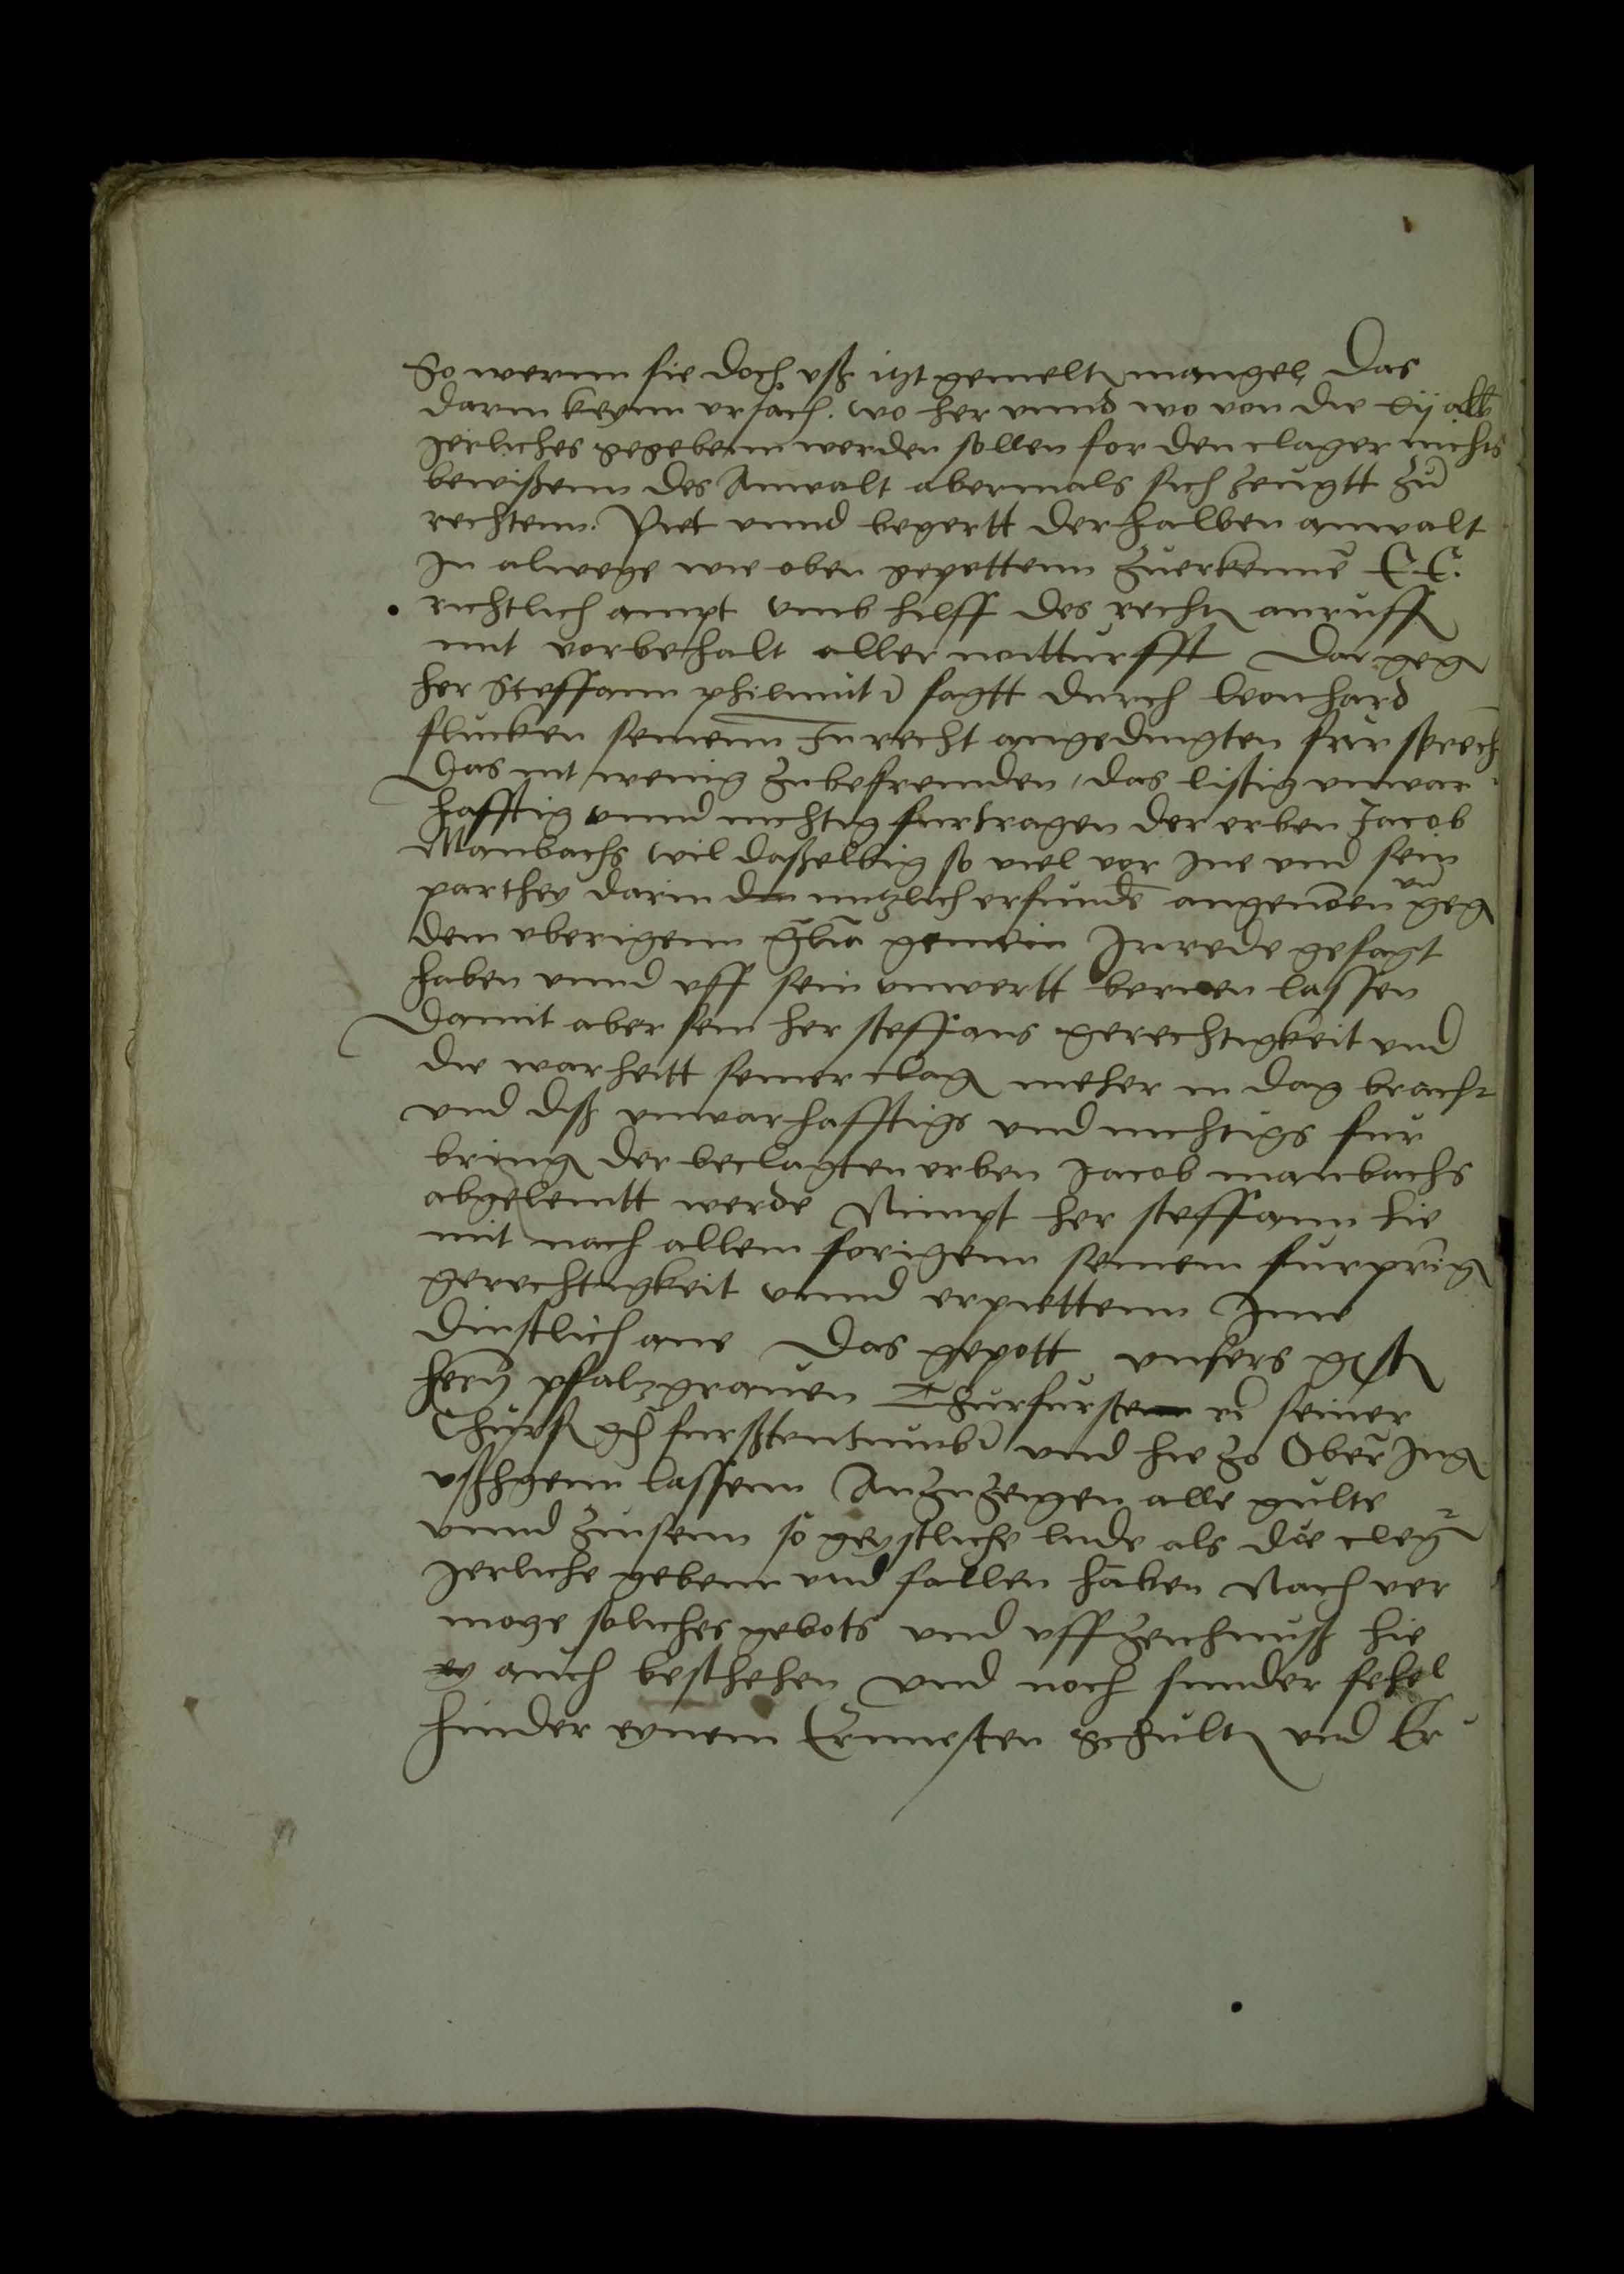 So werenn sie doch uß itzt gemelten mangel, Das
darin keynn ursach. wo her unnd wo von die xij alb
Jerliches gegebenn werden sollen for den clager nichts
bewißenn des Anwalt abermals sich zeugtt zu
rechtenn. Piet unnd begertt derhalben anwalt
In alwege wie oben gepettenn zuerkenne E. E.
richtlich ampt umb hilff des rechten anruffen
mit vorbehalt aller notturfft Dargegen
her Steffann philmut sagtt durch leonhard
flucken seinenn In recht angedingten fursprech
Das nit wenig zubefremden, das listig unwar
hafftig unnd nichtig furtragen der erben Jacob
Manbachs wil daßelbig so viel vor Ine und sein
parthey darin nutzlich erfunde angenomen un gegen
dem uberigenn gemein Inrede gesagt
haben unnd uff sein unwertt beruen lassen
Damit aber sein her steffans gerechtigkeit und
die warheitt seiner clagen meher in dag bracht
und diß unwarhafftigs und nichtigs fur
bringen der beclagten erben Jacob manbachs
abgelentt werde Nimpt her steffann hie
mit nach allem forigenn seinem furpringen
gerechtigkeit unnd erpiettenn Inn
dinstlich ane Das gepott unsers gsten
hern pfalzgrauen Churfursten in seiner
Churf gn furstentumb und hie zo Ober Ingen
ußgenn lassenn Anzuzeigen alle gulte
unnd zinsenn so geystliche lude als die cleger
Jerliche gebenn und fallen haben Nach ver
moge soliches gebots und uffzeichnuß hie
auch beschehen und noch sunder fehel
hinder eynem Ernuesten Schulten und Er